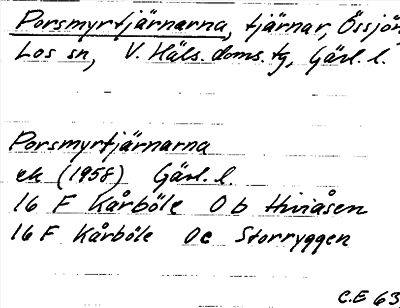 Porsmyrtjärnarna, tjärnar, Össjön
Los sn, V. Häls. doms. tg, Gävl. l.
Porsmyrtjärnarna
ek (1958) Gävl. l.
16 F Kårböle 0 b Hiviåsen
16 F Kårböle 0c Storryggen
C.E 63